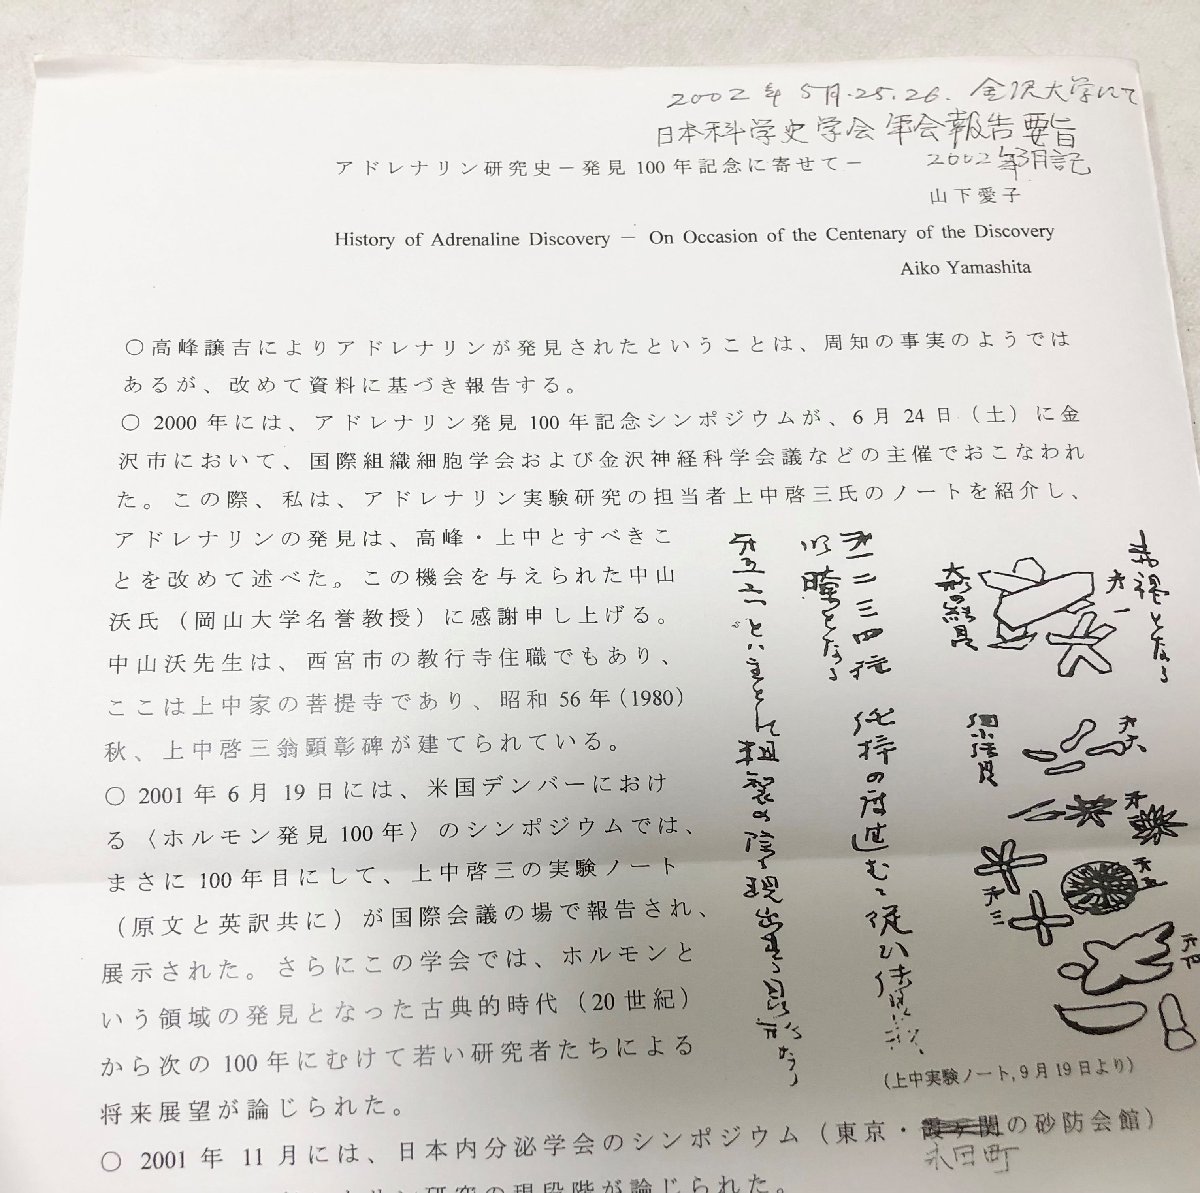 2002年5月25.26. 金沢大学にて
日本科学史学会年会報告要旨
2002年3月記
アドレナリン研究史－発見100年記念に寄せて－
山下愛子
History of Adrenaline Discovery － On Occasion of the Centenary of the Discovery
Aiko Yamashita
○高峰譲吉によりアドレナリンが発見されたということは、周知の事実のようでは
あるが、改めて資料に基づき報告する。
○ 2000年には、アドレナリン発見100年記念シンポジウムが、6月24日（土）に金
沢市において、国際組織細胞学会および金沢神経科学会議などの主催でおこなわれ
た。この際、私は、アドレナリン実験研究の担当者上中啓三氏のノートを紹介し、
アドレナリンの発見は、高峰・上中とすべきこ
とを改めて述べた。この機会を与えられた中山
沃氏（岡山大学名誉教授）に感謝申し上げる。
中山沃先生は、西宮市の教行寺住職でもあり、
ここは上中家の菩提寺であり、昭和56年(1980)
秋、上中啓三翁顕彰碑が建てられている。
○ 2001年6月19日には、米国デンバーにおけ
る〈ホルモン発見100年〉のシンポジウムでは、
まさに100年目にして、上中啓三の実験ノート
（原文と英訳共に）が国際会議の場で報告され、
展示された。さらにこの学会では、ホルモンと
いう領域の発見となった古典的時代（20世紀）
から次の100年にむけて若い研究者たちによる
将来展望が論じられた。
赤褐となる
才一
大形の結晶
才六
才五
才三
才四
才二三四種
（上中実験ノート,9月19日より）
○ 2001年11月には、日本内分泌学会のシンポジウム（東京・霞ヶ関の砂防会館）
永田町
リン研究の現段階が論じられた。